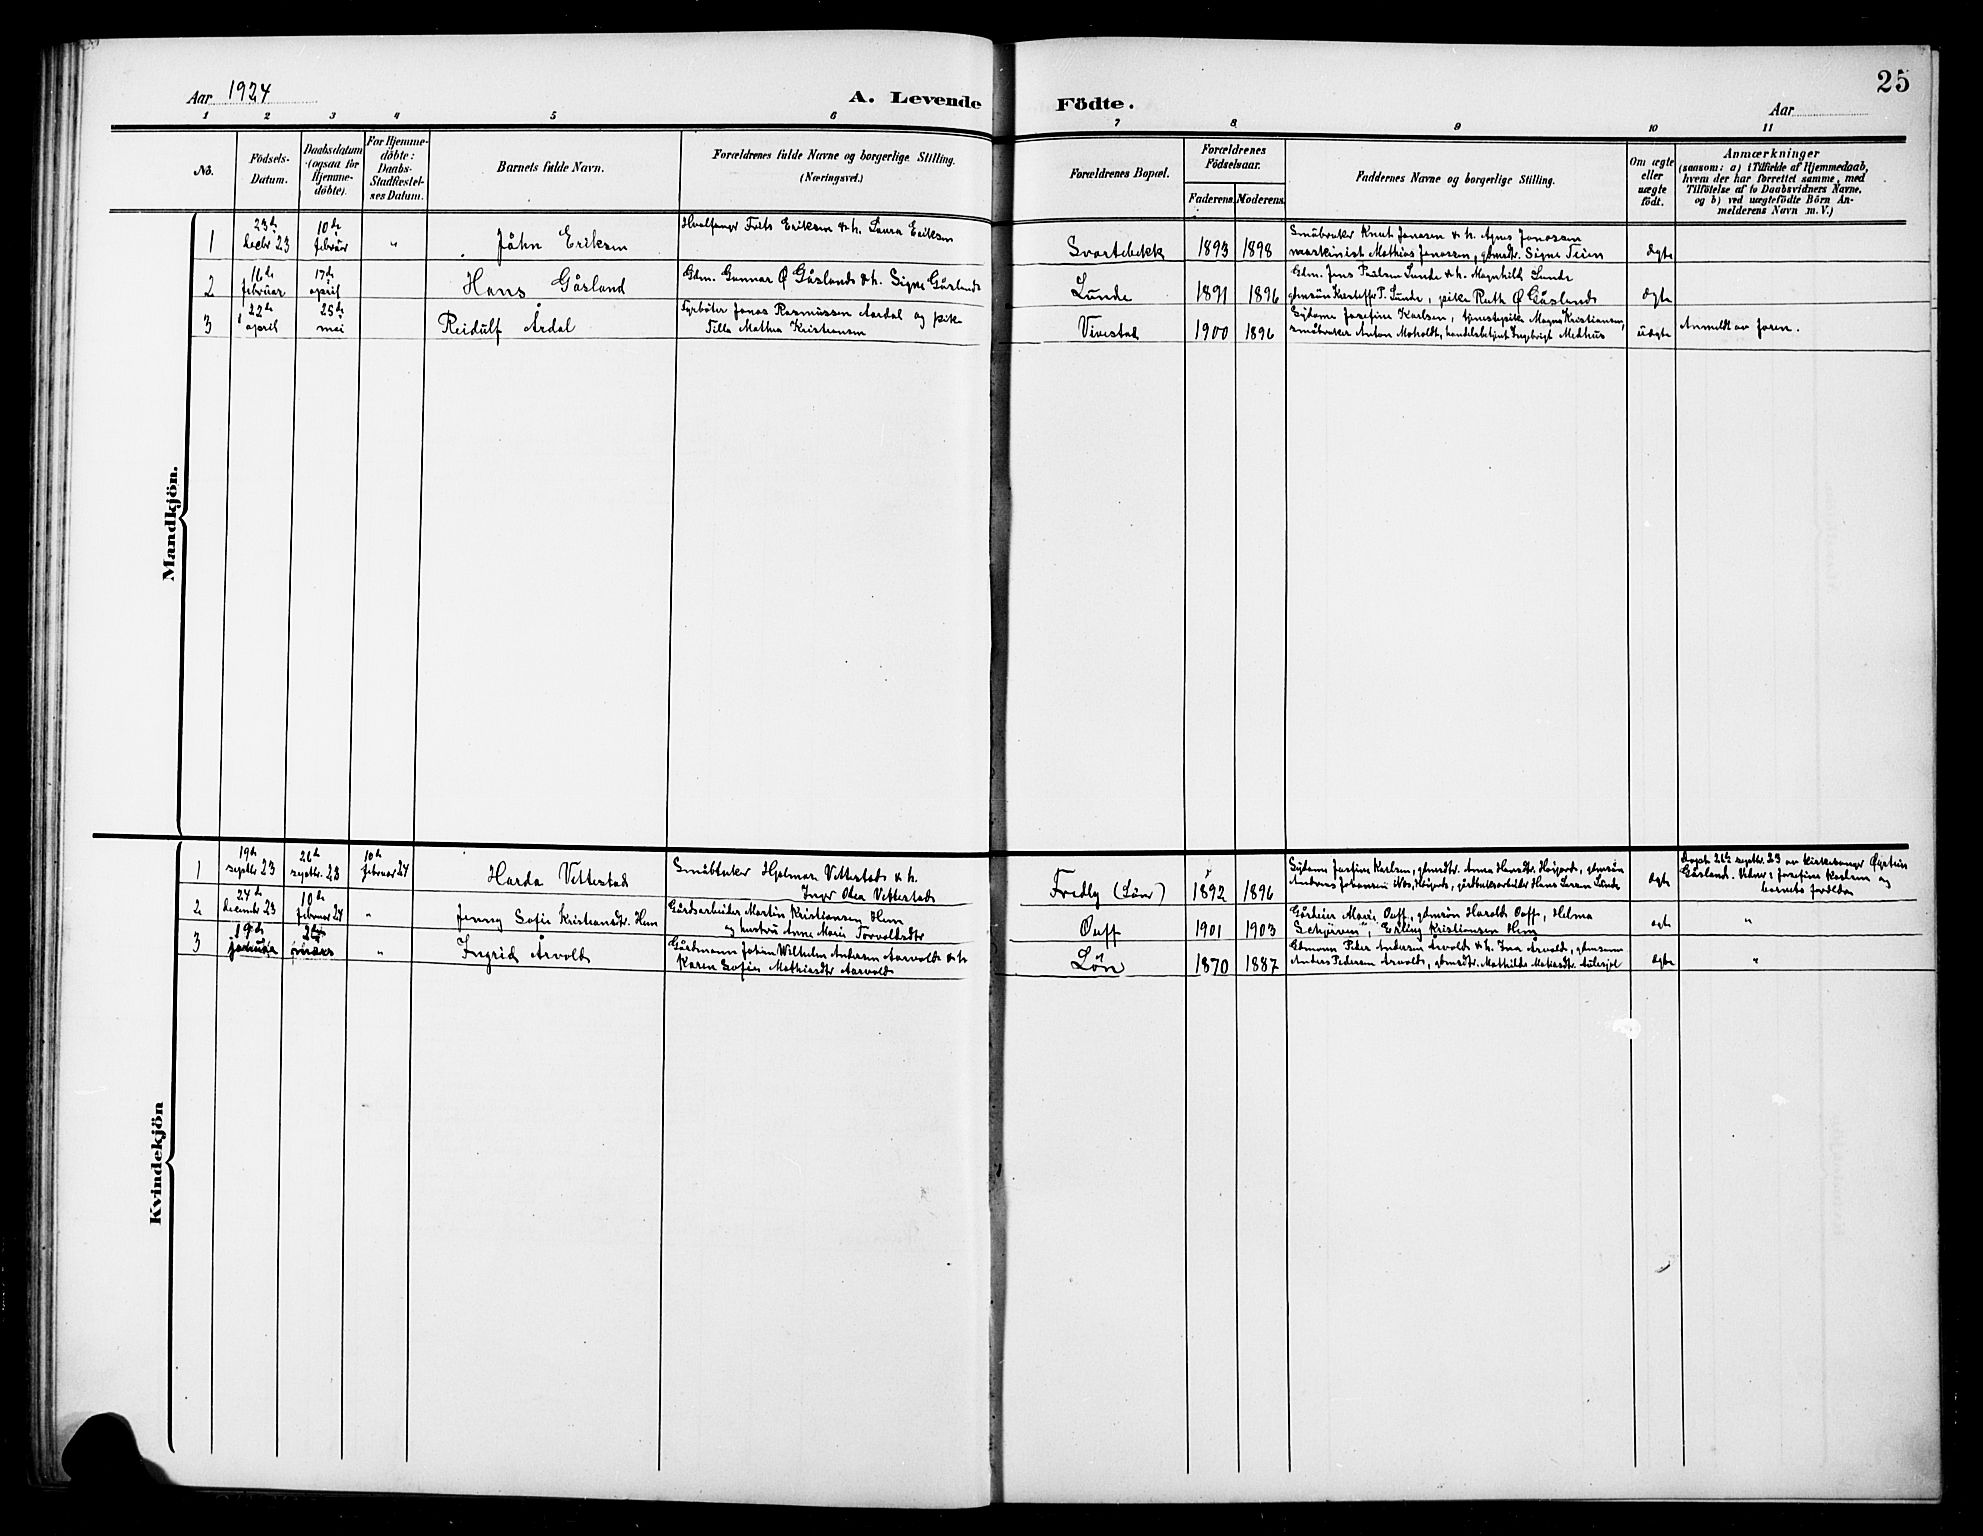 Aar 1924
A. Levende
Födte.
Aar
25
1 2 3 4 5 6 7 8 9 10 11
No.
Födsels-
Datum.
Daabsdatum
(ogsaa for
Hjemme-
döbte).
For Hjemme-
döbte:
Daabs-
Stadfæstel-
ses Datum.
Barnets fulde Navn.
Forældrenes fulde Navne og borgerlige Stilling.
(Næringsvei.)
Forældrenes Bopæl.
Forældrenes
Födselsaar.
Faderens. Moderens.
Faddernes Navne og borgerlige Stilling.
Om ægte
eller
uægte
födt.
Anmærkninger
(saasom: a) i Tilfælde af Hjemmedaab,
hvem der har forrettet samme, med
Tilföielse af to Daabsvidners Navne.
og b) ved uægtefödte Börn An-
melderens Navn m. V.)
Mandkjön.
1
23de
decbr 23
10de
februar
"
John Eriksen
Hvalfanger Frits Eriksen & h. Laura Eriksen
Svartebekk
1893 1898
Småbruker Knut Jonassen & h. Agnes Jonassen
maskinist Mathias Jonassen, gbmdtr. Signe Teien
ægte
2
16de
februar
17de
april
Hans Gåsland
Gbm. Gunnar Ø Gåsland & h. Signe Gåsland
Lunde
1891 1896
Gbm. Jens Paulsen Lunde & h. Magnhild Lunde
gbmsön Kristoffer P. Lunde, pike Ruth Ø Gåsland
ægte
3
22de
april
25de
mai
Reidulf Årdal
Fyrböter Jonas Rasmussen Aardal og pike
Tilla Mathea Kristiansen
Vivestad
1900 1896
Sydame Josefine Karlsen, tjenestepike Magna Kristiansen,
småbruker Anton Moholdt, handelsbetjent Ingebrigt Medhus
uægte
Anmeldt av faren.
Kvindekjön
1
19de
septbr 23
26de
septbr. 23
10de
februar 24
Harda Vettestad
Småbruker Hjalmar Vettestad & h.
Inger Olea Vettestad
Fredly (Lönr)
1892 1896
Sydame Josefine Karlsen, gbmsdtr. Anna Hansdtr. Höijord, gbmsön
Andreas Johansen Höijord, gårdbruksarbeider Hans Larsen Lunde
ægte
Döpt 26de septbr. 23 av kirkesanger Øystein
Gåsland. Vidner: Josefine Karlsen og
barnets foreldre
2
24de
december 23
10de
februar 24
"
Jenny Sofie Kristiansdtr. Hem
Gårdsarbeider Martin Kristiansen Hem
og hustru Anne Marie Torvaldsdtr
1901 1903
Helma
Erling Kristiansen Hem
ægte
"
3
19de
januar
mars
"
Ingrid Årvold
Gårdmann Johan Wilhelm Andersen Aarvold & h
Karen Sofie Mathiasdtr Aarvold
Lön
1870 1887
Gbmann Peder Andersen Årvold & h. Ina Årvold, gbmsönn
Anders Pedersen Årvold, gbmsdtr. Mathilde Mathiasdtr.
ægte
"